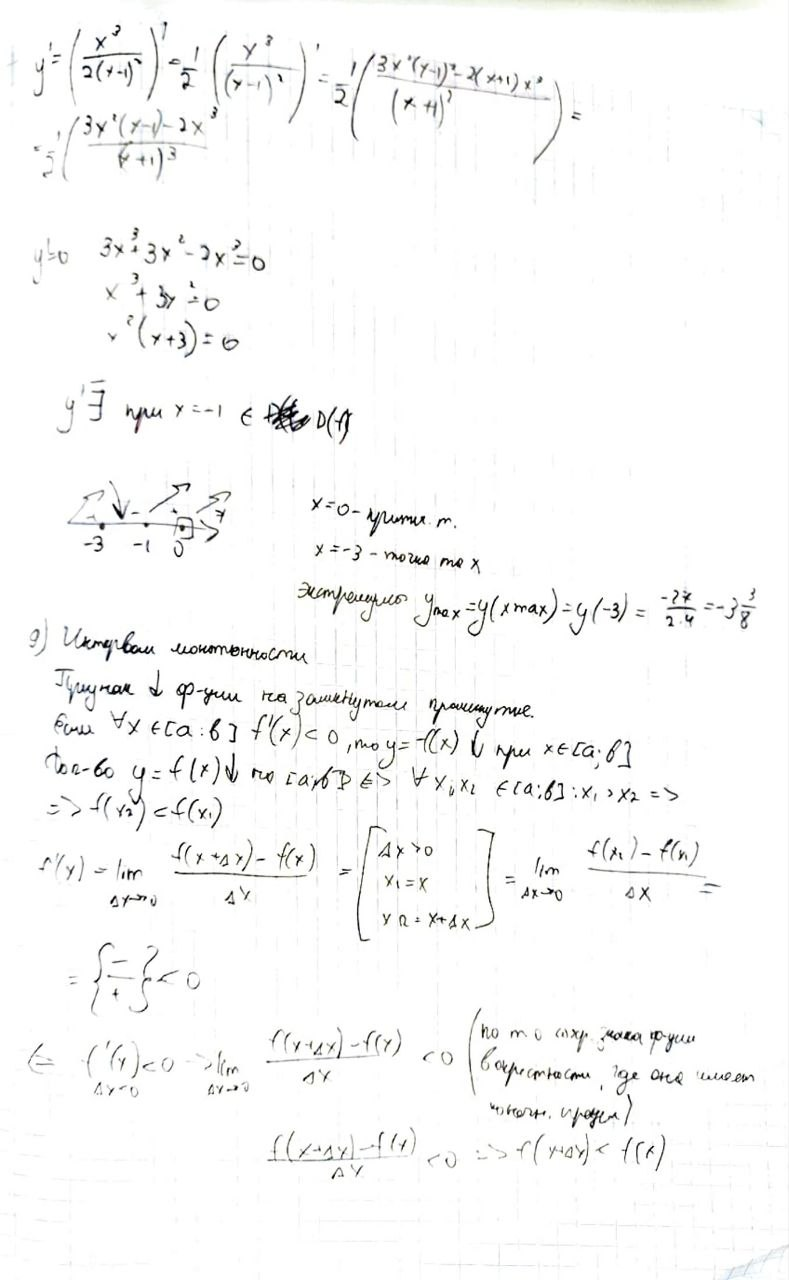 y' = (x³/(2(x-1)²))' = 1/2 (x³/(x-1)²)' = 1/2 ((3x²(x-1)² - 2(x+1)x³)/(x+1)²) =
= 1/2 ((3x²(x-1) - 2x³)/(x+1)³)
y'=0 3x³+3x²-2x³=0
x³+3x²=0
x²(x+3)=0
y' ∃ при x=-1 ∈ D(f)
-3 -1 0
x=0 - критич. т.
x=-3 - точка max
экстремумы y max = y(x max) = y(-3) = -27/(2·4) = -3 3/8
9) Интервалы монотонности
Признак ↓ ф-ции на замкнутом промежутке.
Если ∀x ∈ [a:в] f'(x)<0, то y=f(x) ↓ при x∈[a;в]
Док-во y=f(x)↓ на [a;в] <=> ∀x₁x₂ ∈[a;в]:x₁>x₂ =>
=> f(x₂)<f(x₁)
f'(x) = lim Δx→0 (f(x+Δx)-f(x))/Δx = [Δx>0 x₁=x x₂=x+Δx] = lim Δx→0 (f(x₂)-f(x₁))/Δx =
= {-/+} < 0
(= f'(x)<0 → lim Δx→0 (f(x+Δx)-f(x))/Δx <0 (по т о сохр. знака ф-ции
в окрестности, где она имеет
конечн. предел)
(f(x+Δx)-f(x))/Δx <0 => f(x+Δx)< f(x)